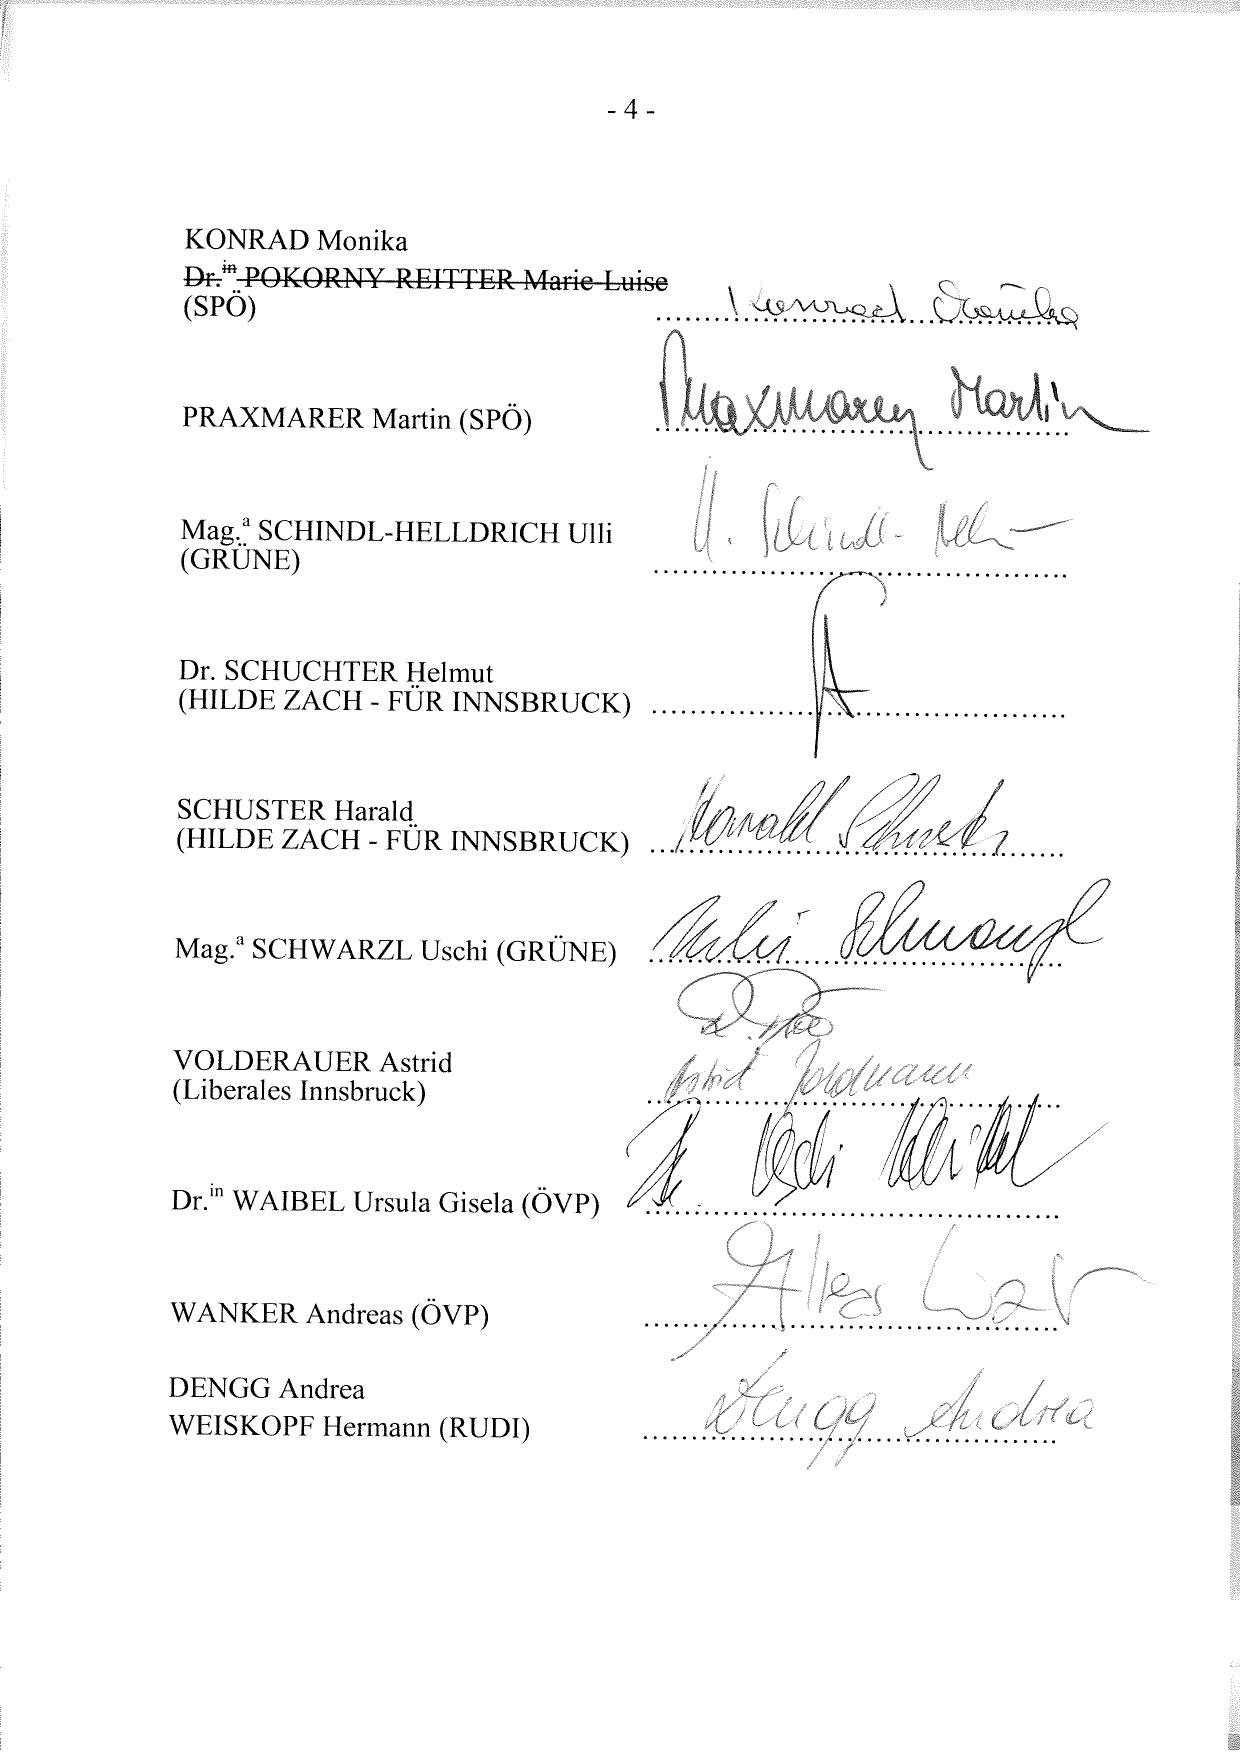 - 4 -
KONRAD Monika
Dr.in POKORNY-REITTER Marie-Luise
(SPÖ)
Konrad Monika
Praxmarer Martin
PRAXMARER Martin (SPÖ)
U. Schindl-Hell
Mag.a SCHINDL-HELLDRICH Ulli
(GRÜNE)
Dr. SCHUCHTER Helmut
(HILDE ZACH - FÜR INNSBRUCK)
SCHUSTER Harald
(HILDE ZACH - FÜR INNSBRUCK)
Harald Schuster
Mag.a SCHWARZL Uschi (GRÜNE)
Uschi Schwarzl
VOLDERAUER Astrid
(Liberales Innsbruck)
Astrid
Dr. Uschi Waibel
Dr.in WAIBEL Ursula Gisela (ÖVP)
WANKER Andreas (ÖVP)
DENGG Andrea
WEISKOPF Hermann (RUDI)
Dengg Andrea